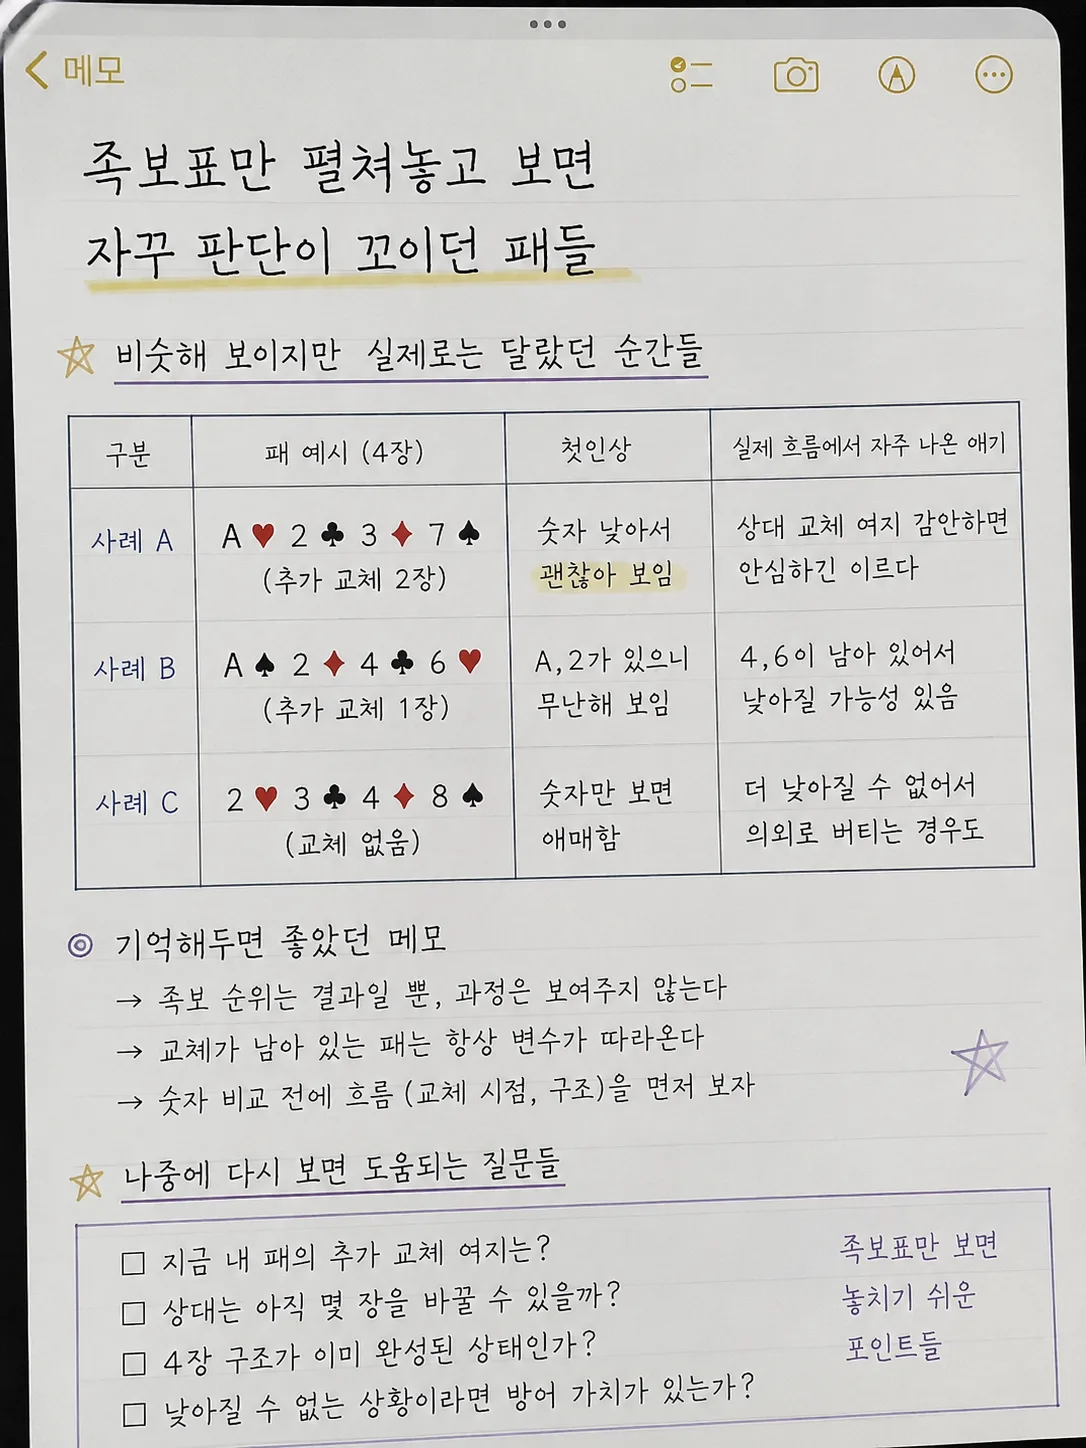 메모
족보표만 펼쳐놓고 보면
자꾸 판단이 꼬이던 패들
비슷해 보이지만 실제로는 달랐던 순간들
구분 패 예시 (4장) 첫인상 실제 흐름에서 자주 나온 얘기
사례 A A♥ 2♣ 3♦ 7♠ 숫자 낮아서 상대 교체 여지 감안하면
(추가 교체 2장) 괜찮아 보임 안심하긴 이르다
사례 B A♠ 2♦ 4♣ 6♥ A,2가 있으니 4,6이 남아 있어서
(추가 교체 1장) 무난해 보임 낮아질 가능성 있음
사례 C 2♥ 3♣ 4♦ 8♠ 숫자만 보면 더 낮아질 수 없어서
(교체 없음) 애매함 의외로 버티는 경우도
◎ 기억해두면 좋았던 메모
→ 족보 순위는 결과일 뿐, 과정은 보여주지 않는다
→ 교체가 남아 있는 패는 항상 변수가 따라온다
→ 숫자 비교 전에 흐름 (교체 시점, 구조)을 먼저 보자
나중에 다시 보면 도움되는 질문들
□ 지금 내 패의 추가 교체 여지는?
□ 상대는 아직 몇 장을 바꿀 수 있을까?
□ 4장 구조가 이미 완성된 상태인가?
□ 낮아질 수 없는 상황이라면 방어 가치가 있는가?
족보표만 보면
놓치기 쉬운
포인트들